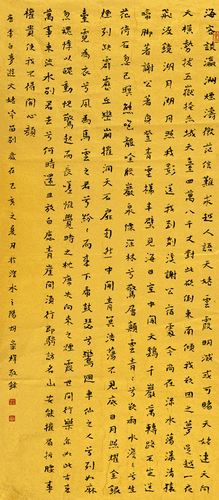 海客談瀛洲煙濤微茫信難求越人語天姥雲霞明滅或可睹天姥連天向
天橫勢拔五嶽掩赤城天台四萬八千丈對此欲倒東南傾我欲因之夢吳越一夜飛
度鏡湖月湖月照我影送我到剡溪謝公宿處今尚在淥水蕩漾清猿
啼腳著謝公屐身登青雲梯半壁見海日空中聞天雞千巖萬轉路不定迷
花倚石忽已暝熊咆龍吟殷巖泉慄深林兮驚層巔雲青青兮欲雨水澹澹兮生
煙列缺霹靂丘巒崩摧洞天石扉訇然中開青冥浩蕩不見底日月照耀金銀
臺霓為衣兮風為馬雲之君兮紛紛而來下虎鼓瑟兮鸞迴車仙之人兮列如麻
忽魂悸以魄動怳驚起而長嗟惟覺時之枕席失向來之煙霞世間行樂亦如此古來
萬事東流水別君去兮何時還且放白鹿青崖間須行即騎訪名山安能摧眉折腰事
權貴使我不得開心顏
唐李白夢遊天姥吟留別歲在己亥之夏月於水之陽胡輝敬錄